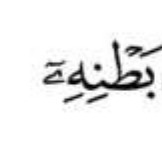 بَطْنِهِۦٓ